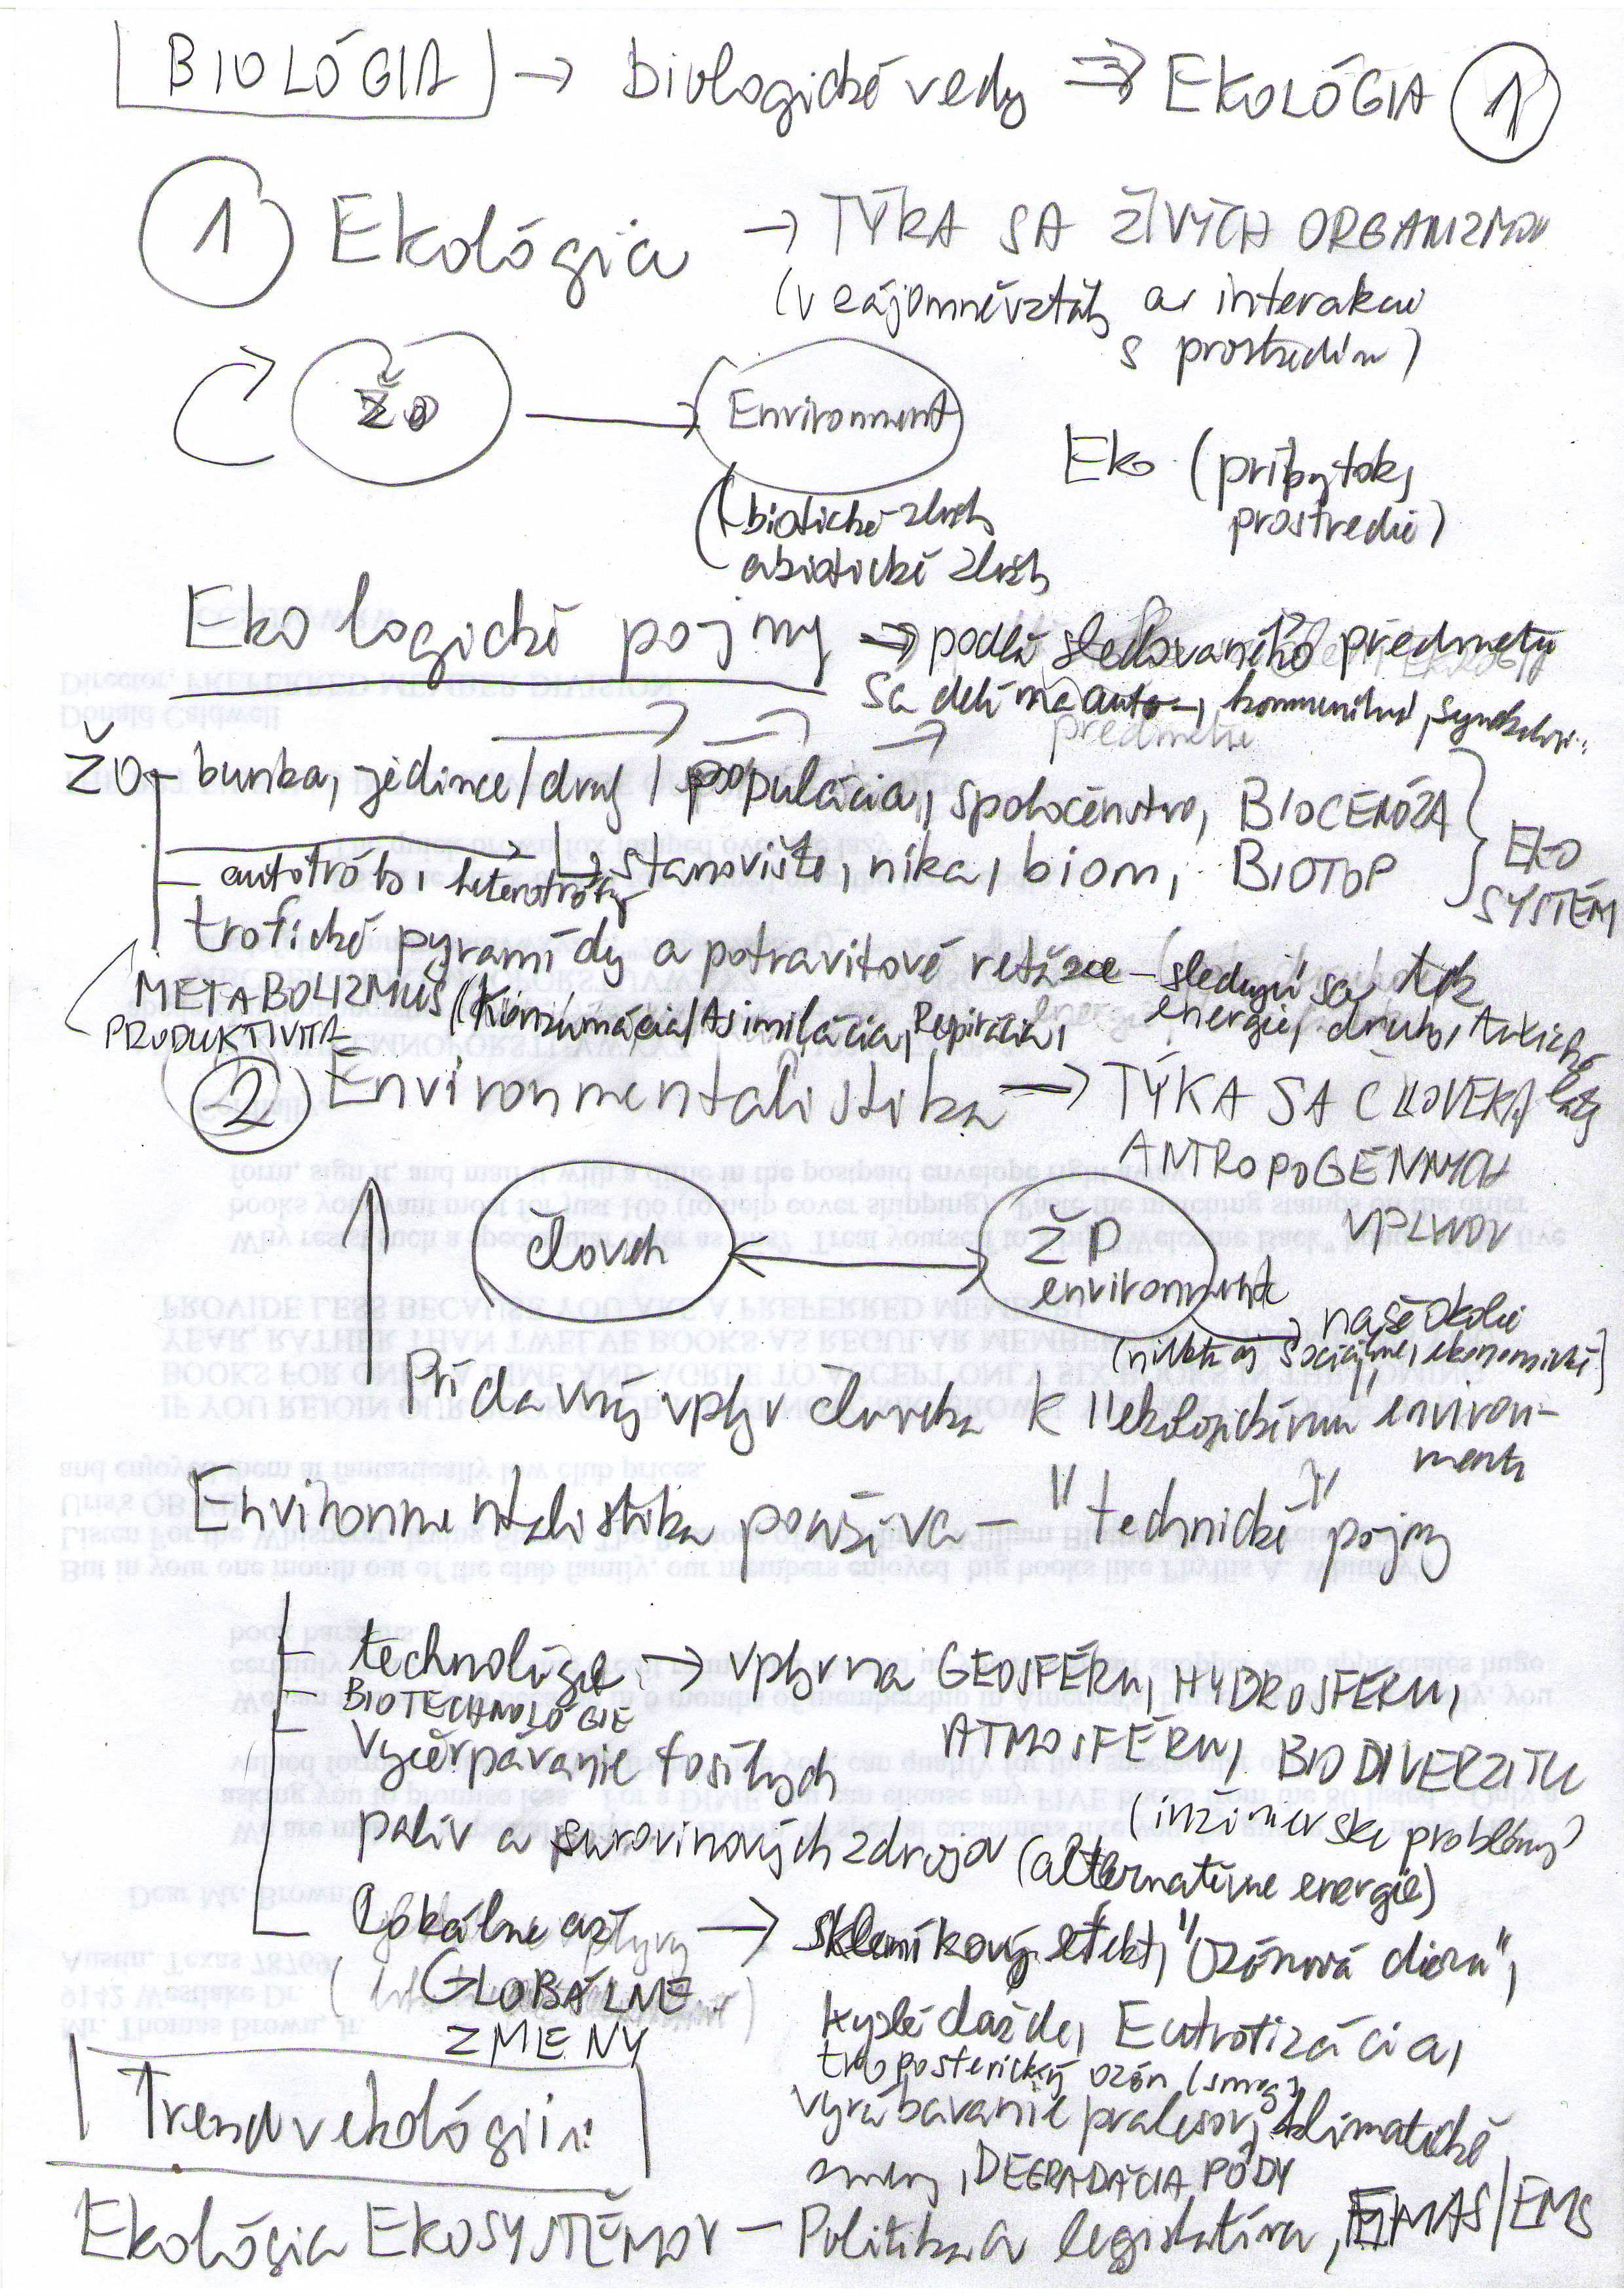 BIOLÓGIA → biologické vedy ⇒ EKOLÓGIA 1
1 Ekológia → TÝKA SA ŽIVÝCH ORGANIZMOV
(vzájomné vzťahy a interakcie
s prostredím)
ŽO → Environment
Eko (príbytok,
prostredie)
(biotické zložky
abiotické zložky
Ekologické pojmy → podľa sledovaného predmetu
sa delí na auto-,
predmetu
ŽO - bunka, jedince/druh / populácia, spoločenstvo, BIOCENÓZA
autotrofy, heterotrofy → stanovište, nika, biom, BIOTOP
EKO
SYSTÉM
trofické pyramídy a potravitové reťazce - sledujú sa tok
energie, druhy,
METABOLIZMUS (Konzumácia/Asimilácia, Respirácia,
PRODUKTIVITA
2 Environmentalistika → TÝKA SA ČLOVEKA
ANTROPOGÉNNYCH
VPLYVOV
človek ↔ ŽP
environment
→ naše okolie
(niekt. aj sociálne, ekonomické)
Prídavný vplyv človeka k "ekologickému environ-
mentu"
Environmentalistika používa - "technické" pojmy
technológie → vplyv na GEOSFÉRU, HYDROSFÉRU,
BIOTECHNOLÓGIE
ATMOSFÉRU, BIODIVERZITU
Vyčerpávanie fosílnych
(inžinierske problémy)
palív a surovinových zdrojov (alternatívne energie)
Lokálne až → skleníkový efekt, "Ozónová diera",
GLOBÁLNE
ZMENY
kyslé dažde, Eutrofizácia,
troposferický ozón (smog)
vyrúbavanie pralesov, klimatické
zmeny, DEGRADÁCIA PÔDY
Trend v ekológii:
Ekológia EKOSYSTÉMOV - Politika a legislatíva, EMAS/EMS